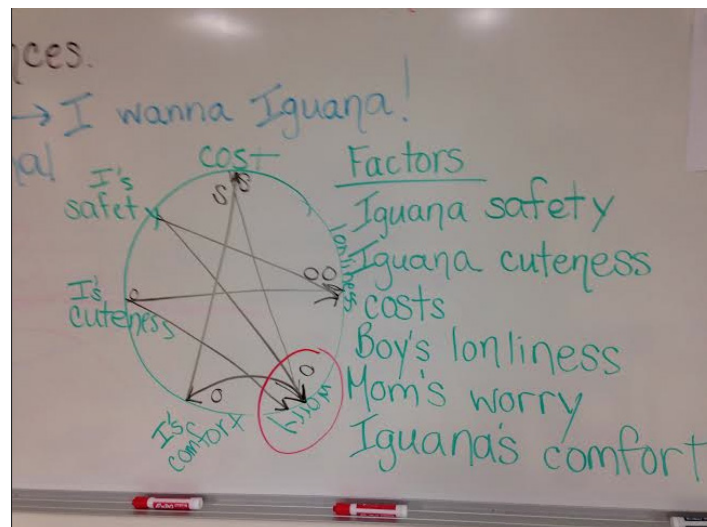 nces.
→ I wanna Iguana!
na!
cost
S S
I's
safety
lonliness
O O
I's
cuteness
O
worry
O
I's
comfort
Factors
Iguana safety
Iguana cuteness
costs
Boy's lonliness
Mom's worry
Iguana's comfort